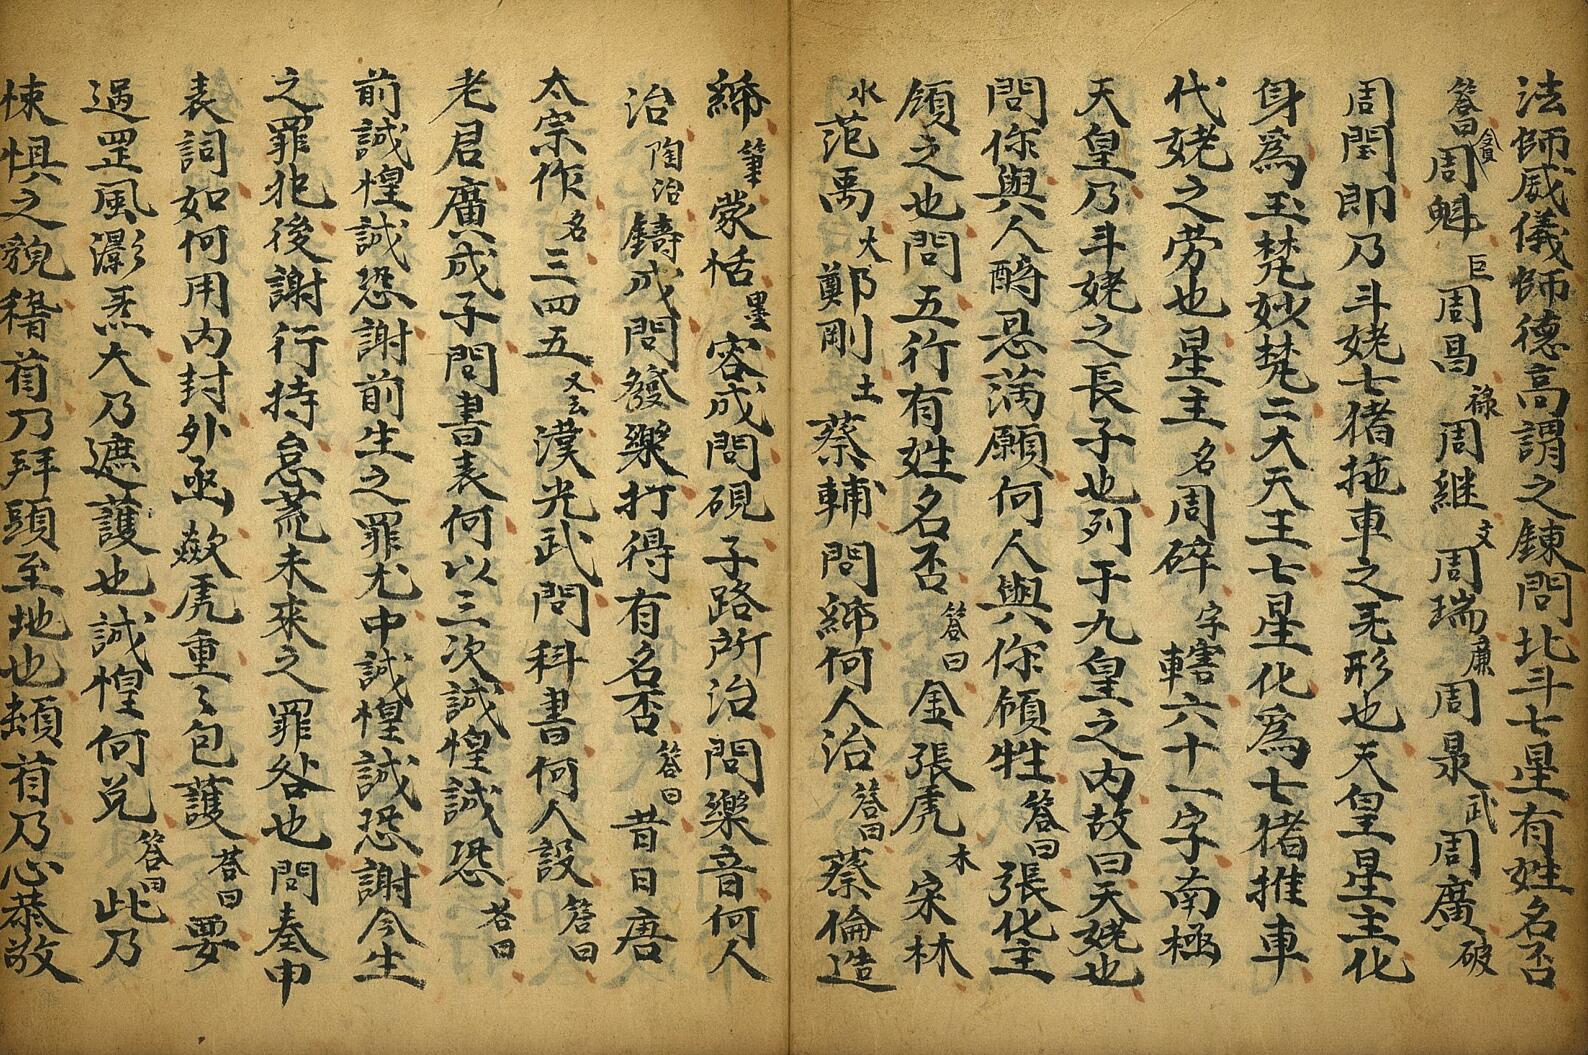 法師威儀師德高謂之鍊問北斗七星有姓名否
答曰貪周魁巨周昌祿周継文周瑞廉周泉武周廣破
周閏即乃斗姥七猪拖車之旡形也天皇星主化
身為玉梵妙梵二大天王七星化為七猪推車
代姥之劳也星主名周碎字轄六十一字南極
天皇乃斗姥之長子也列于九皇之内故曰天姥也
問你與人酧恩满願何人與你領牲答曰張化主
領之也問五行有姓名否答曰金張虎木宋林
水范禹火鄭剛土蔡輔問締何人治答曰蔡倫造
締筆蒙恬墨容成問硯子路所治問樂音何人
治陶治鑄成問發樂打得有名否答曰昔日唐
太宗作名三四五又云漢光武問科書何人設答曰
老君廣成子問書表何以三次誠惶誠恐答曰
前誠惶誠恐謝前生之罪尤中誠惶誠恐謝今生
之罪犯後謝行持怠荒未來之罪咎也問奏申
表詞如何用内封外函歘虎重〻包護答曰要
過罡風灝炁大乃遮護也誠惶何兑答曰此乃
悚惧之貌稽首乃拜頭至地也頓首乃心恭敬